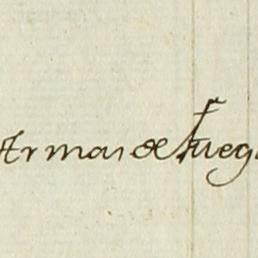 Armas de fueg